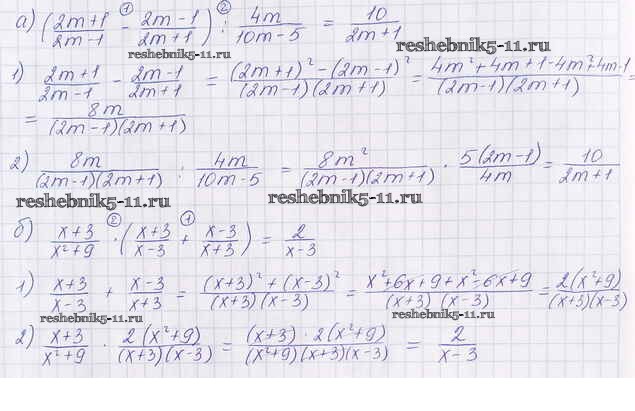 а) ((2m+1)/(2m-1) - (2m-1)/(2m+1)) : 4m/(10m-5) = 10/(2m+1)
① ②
reshebnik5-11.ru reshebnik5-11.ru
1) (2m+1)/(2m-1) - (2m-1)/(2m+1) = ((2m+1)² - (2m-1)²)/((2m-1)(2m+1)) = (4m²+4m+1-4m²+4m-1)/((2m-1)(2m+1)) =
= 8m/((2m-1)(2m+1))
2) 8m/((2m-1)(2m+1)) : 4m/(10m-5) = 8m²/((2m-1)(2m+1)) · 5(2m-1)/4m = 10/(2m+1)
reshebnik5-11.ru reshebnik5-11.ru
② ①
б) (x+3)/(x²+9) · ((x+3)/(x-3) + (x-3)/(x+3)) = 2/(x-3)
1) (x+3)/(x-3) + (x-3)/(x+3) = ((x+3)² + (x-3)²)/((x+3)(x-3)) = (x²+6x+9+x²-6x+9)/((x+3)(x-3)) = 2(x²+9)/((x+3)(x-3))
reshebnik5-11.ru reshebnik5-11.ru
2) (x+3)/(x²+9) · 2(x²+9)/((x+3)(x-3)) = ((x+3)·2(x²+9))/((x²+9)(x+3)(x-3)) = 2/(x-3)